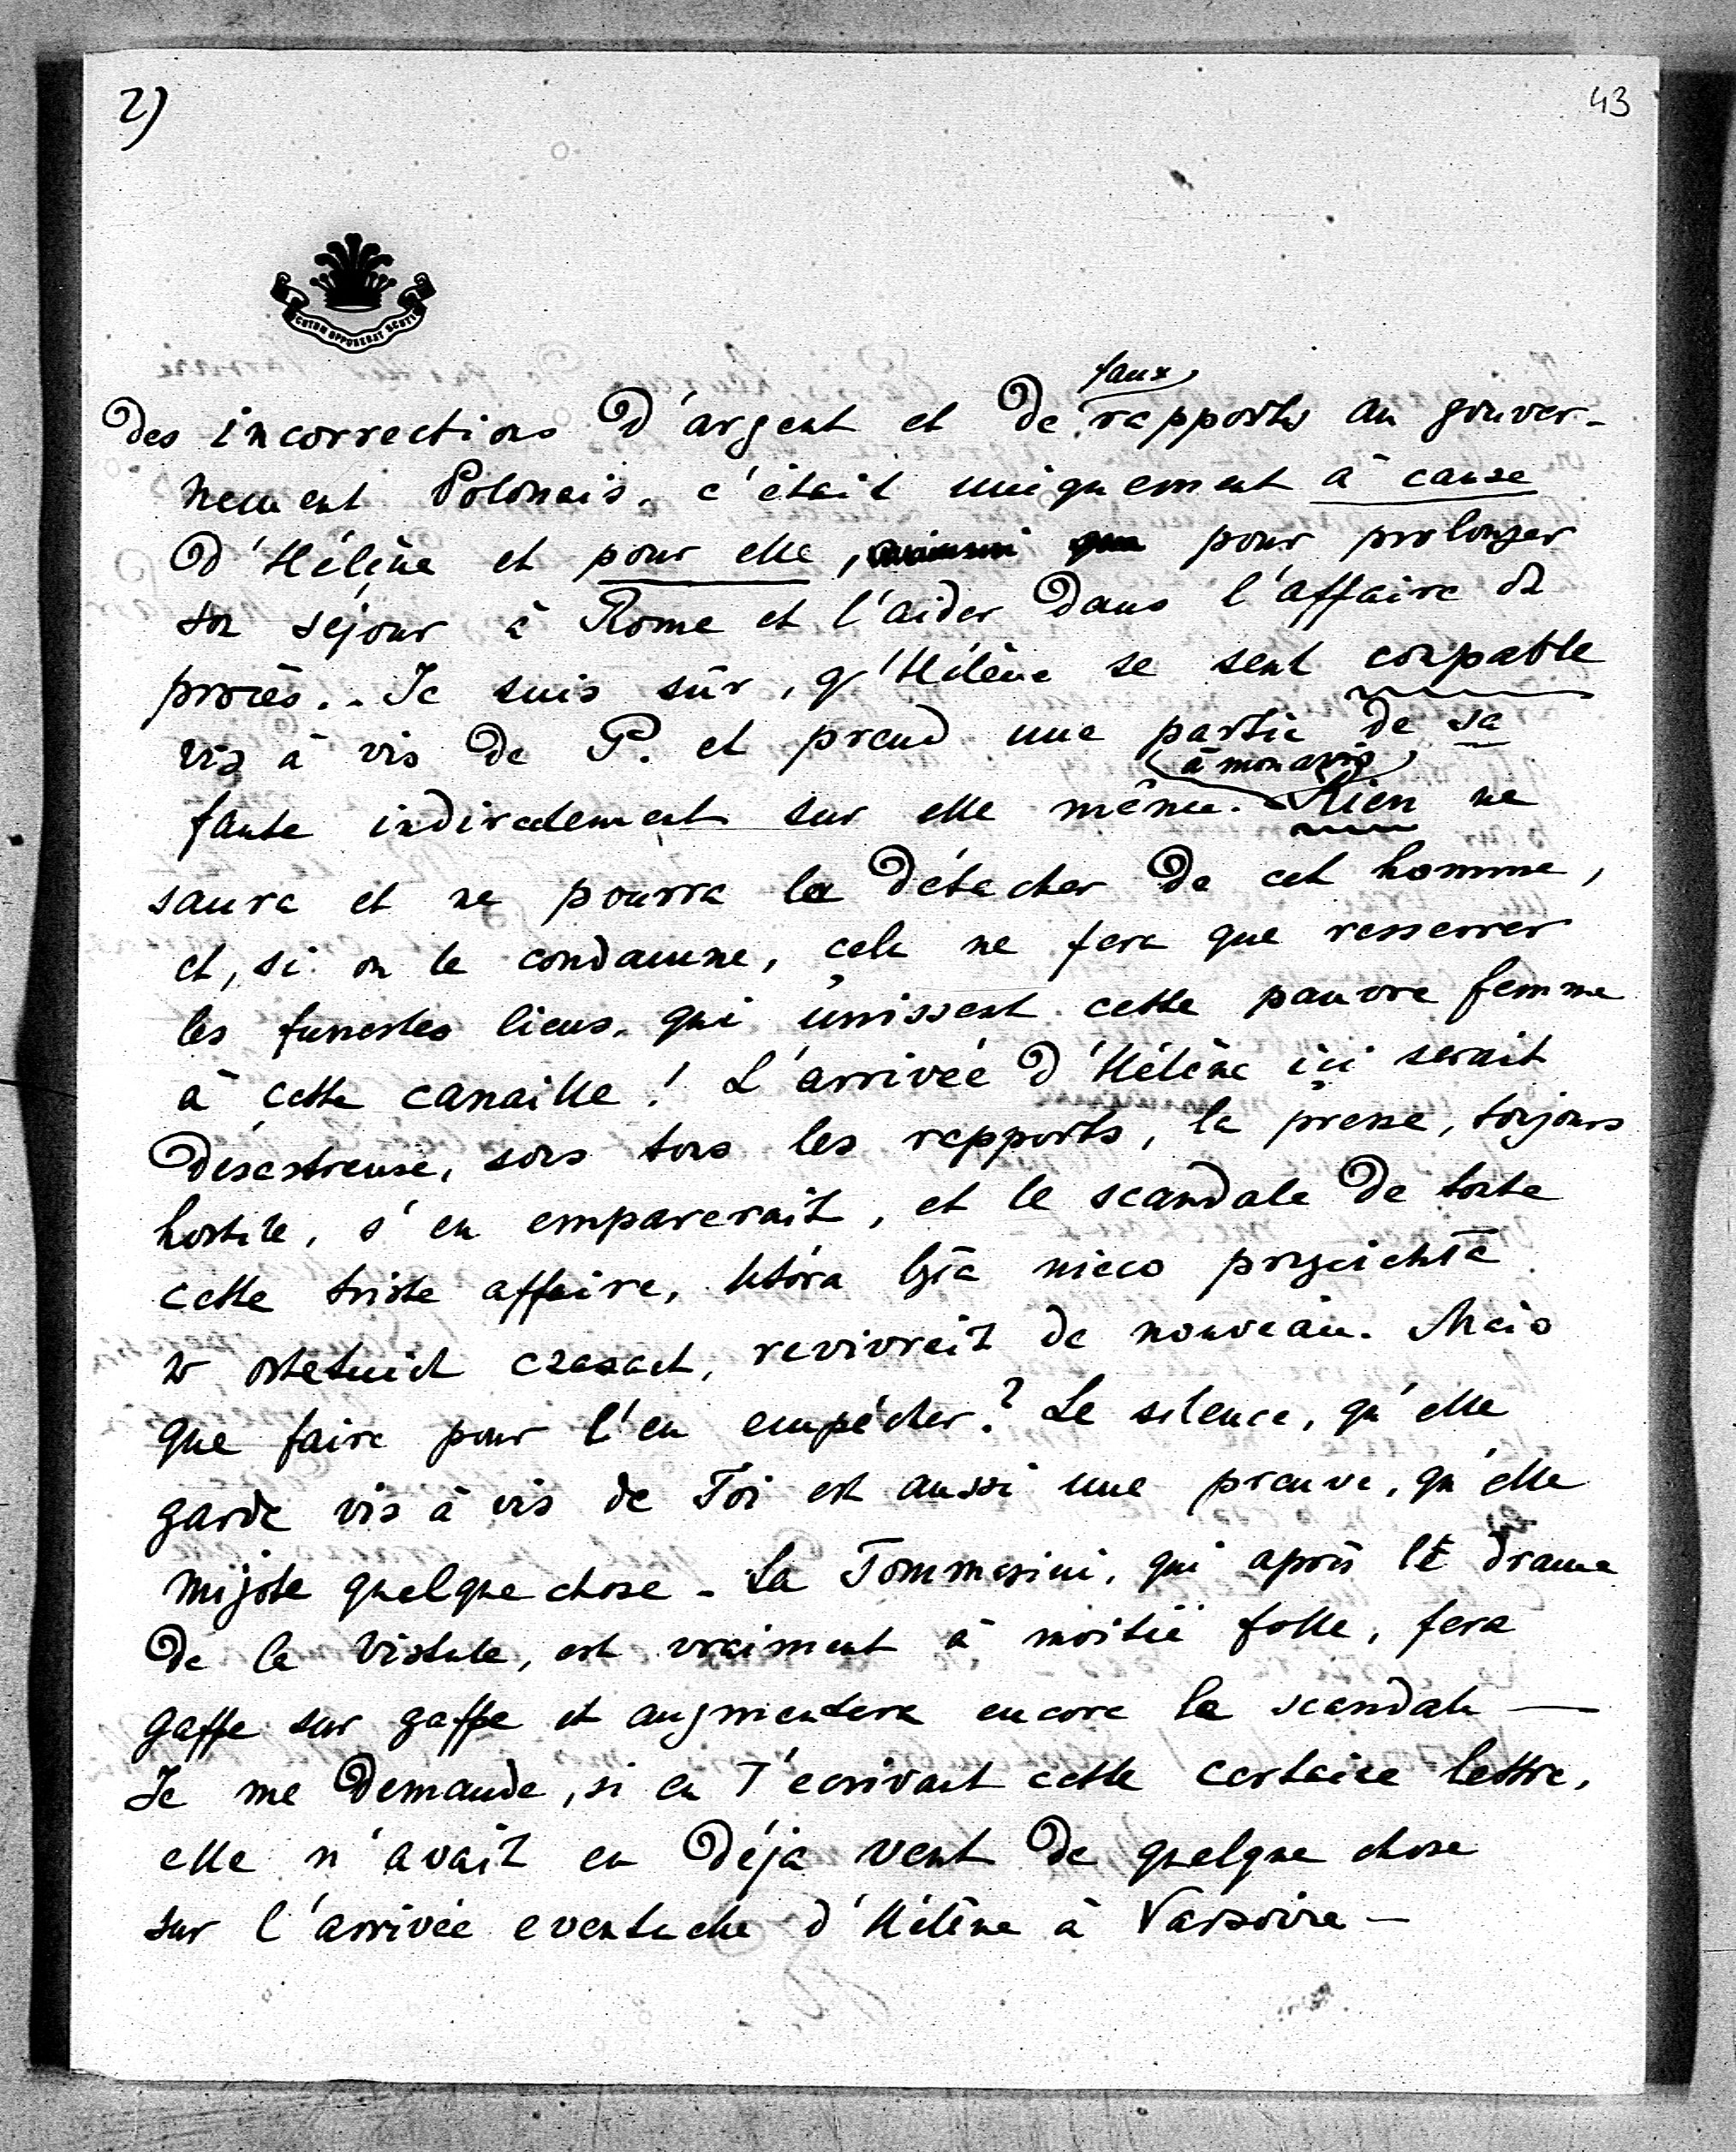 2)
43
SCUTUM OPPONEBAT SCUTIS
faux
des incorrections d'argent et de rapports au gouver-
nement Polonais, c'était uniquement à cause
d'Hélène et pour elle, pour prolonger
son séjour à Rome et l'aider dans l'affaire du
procès.. Je suis sûr, q'Hélène se sent coupable
vis à vis de P. et prend une partie de sa
(à mon avis)
faute indirectement sur elle même. Rien ne
saura et ne pourra la détacher de cet homme,
et, si on le condamne, cela ne fera que resserrer
les funestes liens, qui unissent cette pauvre femme
à cette canaille! L'arrivée d'Hélène içi serait
désastreuse, sous tous les rapports, la presse, toujours
hostile, s'en emparerait, et le scandale de toute
cette triste affaire, która była nieco przycichła
w ostatnich czasach, revivrait de nouveau. Mais
que faire pour l'en empêcher? Le silence, qu'elle
garde vis à vis de Toi est aussi une preuve, qu'elle
mijote quelque chose - La Tommasini, qui après le drame
de la Vistule, est vraiment à moitié folle, fera
gaffe sur gaffe et augmentera encore le scandale —
Je me demande, si en T'écrivant cette certaine lettre,
elle n'avait eu déja vent de quelque chose
sur l'arrivée eventuelle d'Hélène à Varsovie —